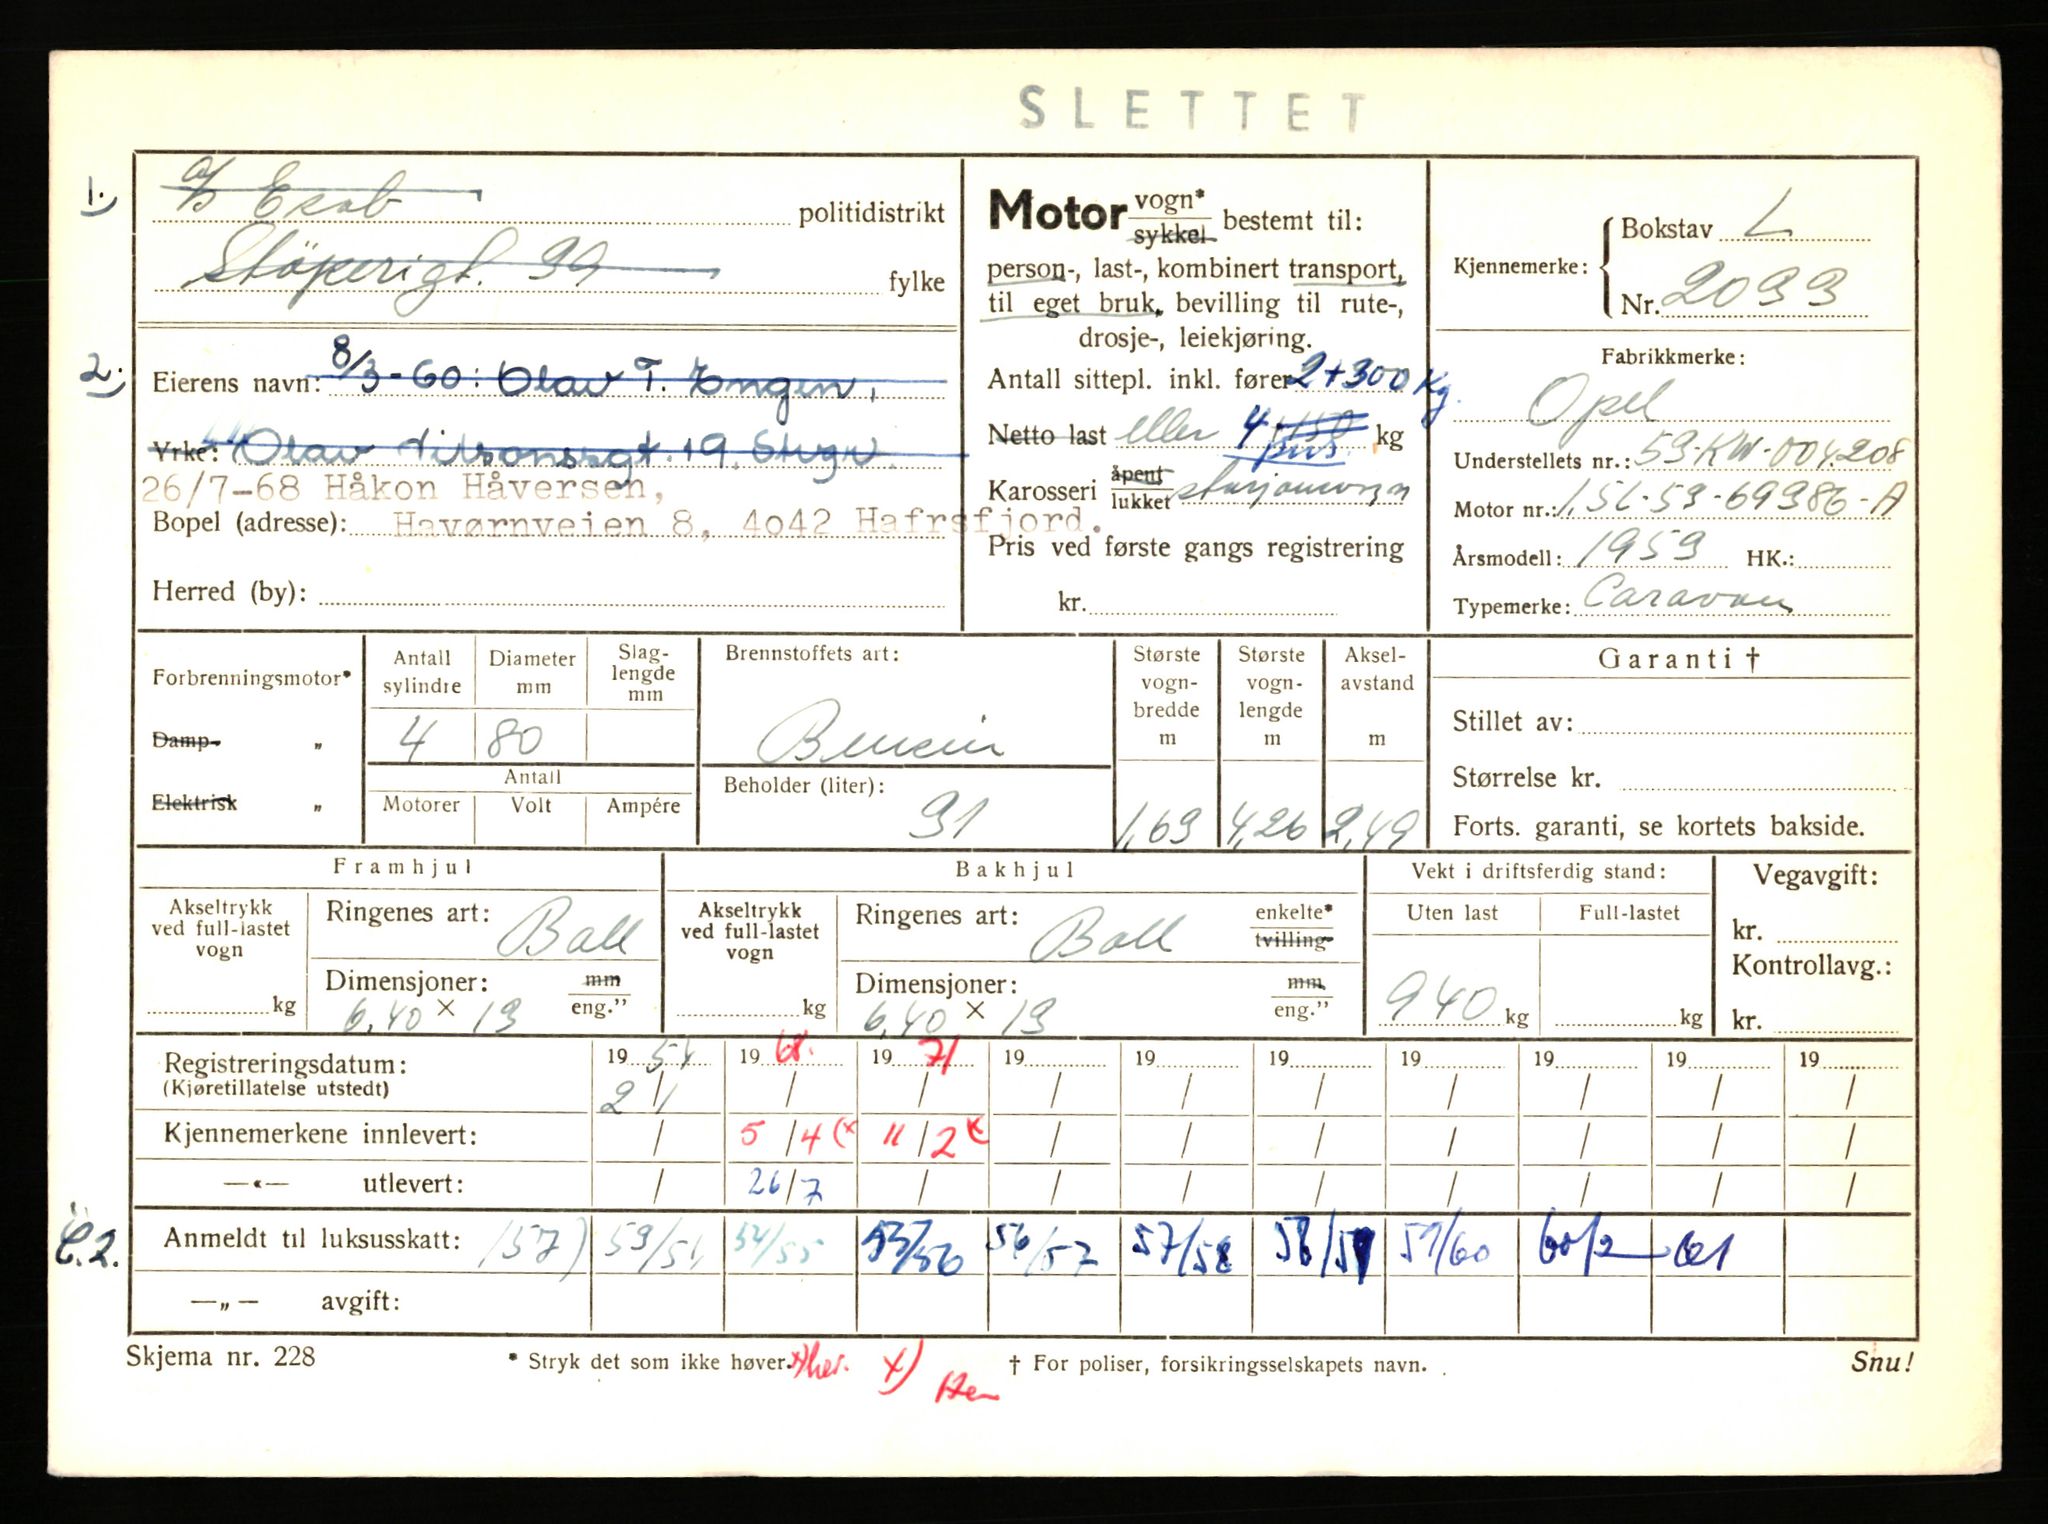 SLETTET
1. a/s Esab politidistrikt
Støperigt. 39 fylke
2. Eierens navn: 8/3-60: Olav T. Engen,
Yrke: Olav Nilsonsgt. 19. Stvgr.
26/7-68 Håkon Håversen,
Bopel (adresse): Havørnveien 8, 4o42 Hafrsfjord.
Herred (by):
Motor vogn* sykkel bestemt til:
person-, last-, kombinert transport,
til eget bruk, bevilling til rute-,
drosje-, leiekjøring.
Antall sittepl. inkl. fører 2+300 Kg.
Netto last eller 4 +150 kg
pers.
Karosseri åpent lukket stasjonsvogn
Pris ved første gangs registrering
kr.
Kjennemerke: Bokstav L
Nr. 2033
Fabrikkmerke:
Opel
Understellets nr.: 53-KW-004.208
Motor nr.: 1,5L-53-69386-A
Årsmodell: 1953 HK.:
Typemerke: Caravan
Forbrenningsmotor*
Damp- „
Elektrisk „
Antall sylindre Diameter mm Slag-lengde mm
4 80
Antall
Motorer Volt Ampére
Brennstoffets art:
Bensin
Beholder (liter):
31
Største vogn-bredde m
1,63
Største vogn-lengde m
4,26
Aksel-avstand m
2,49
Garanti †
Stillet av:
Størrelse kr.
Forts. garanti, se kortets bakside.
Framhjul
Akseltrykk ved full-lastet vogn
kg
Ringenes art: Ball
Dimensjoner: mm eng.”
6,40 × 13
Bakhjul
Akseltrykk ved full-lastet vogn
kg
Ringenes art: Ball enkelte* tvilling-
Dimensjoner: mm eng.”
6,40 × 13
Vekt i driftsferdig stand:
Uten last Full-lastet
940 kg kg
Vegavgift:
kr.
Kontrollavg.:
kr.
Registreringsdatum: 19 54 19 68. 19 71 19 19 19 19 19 19 19
(Kjøretillatelse utstedt) 2/1 / / / / / / / / /
Kjennemerkene innlevert: / 5/4 (x 11/2 x / / / / / / /
—«— utlevert: / 26/7 / / / / / / / /
C.2. Anmeldt til luksusskatt: 157) 53/54 54/55 55/56 56/57 57/58 58/59 59/60 60/2 61
—„— avgift:
Skjema nr. 228 * Stryk det som ikke høver. x) her. x) † For poliser, forsikringsselskapets navn. Snu!